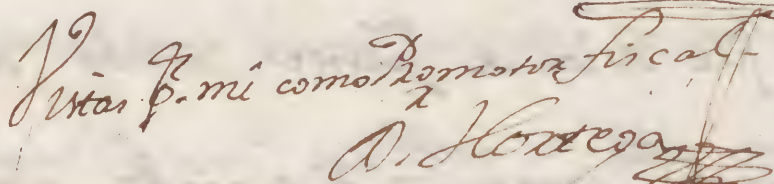 Vistas p. mi como Promotor fiscal
D. Hortega